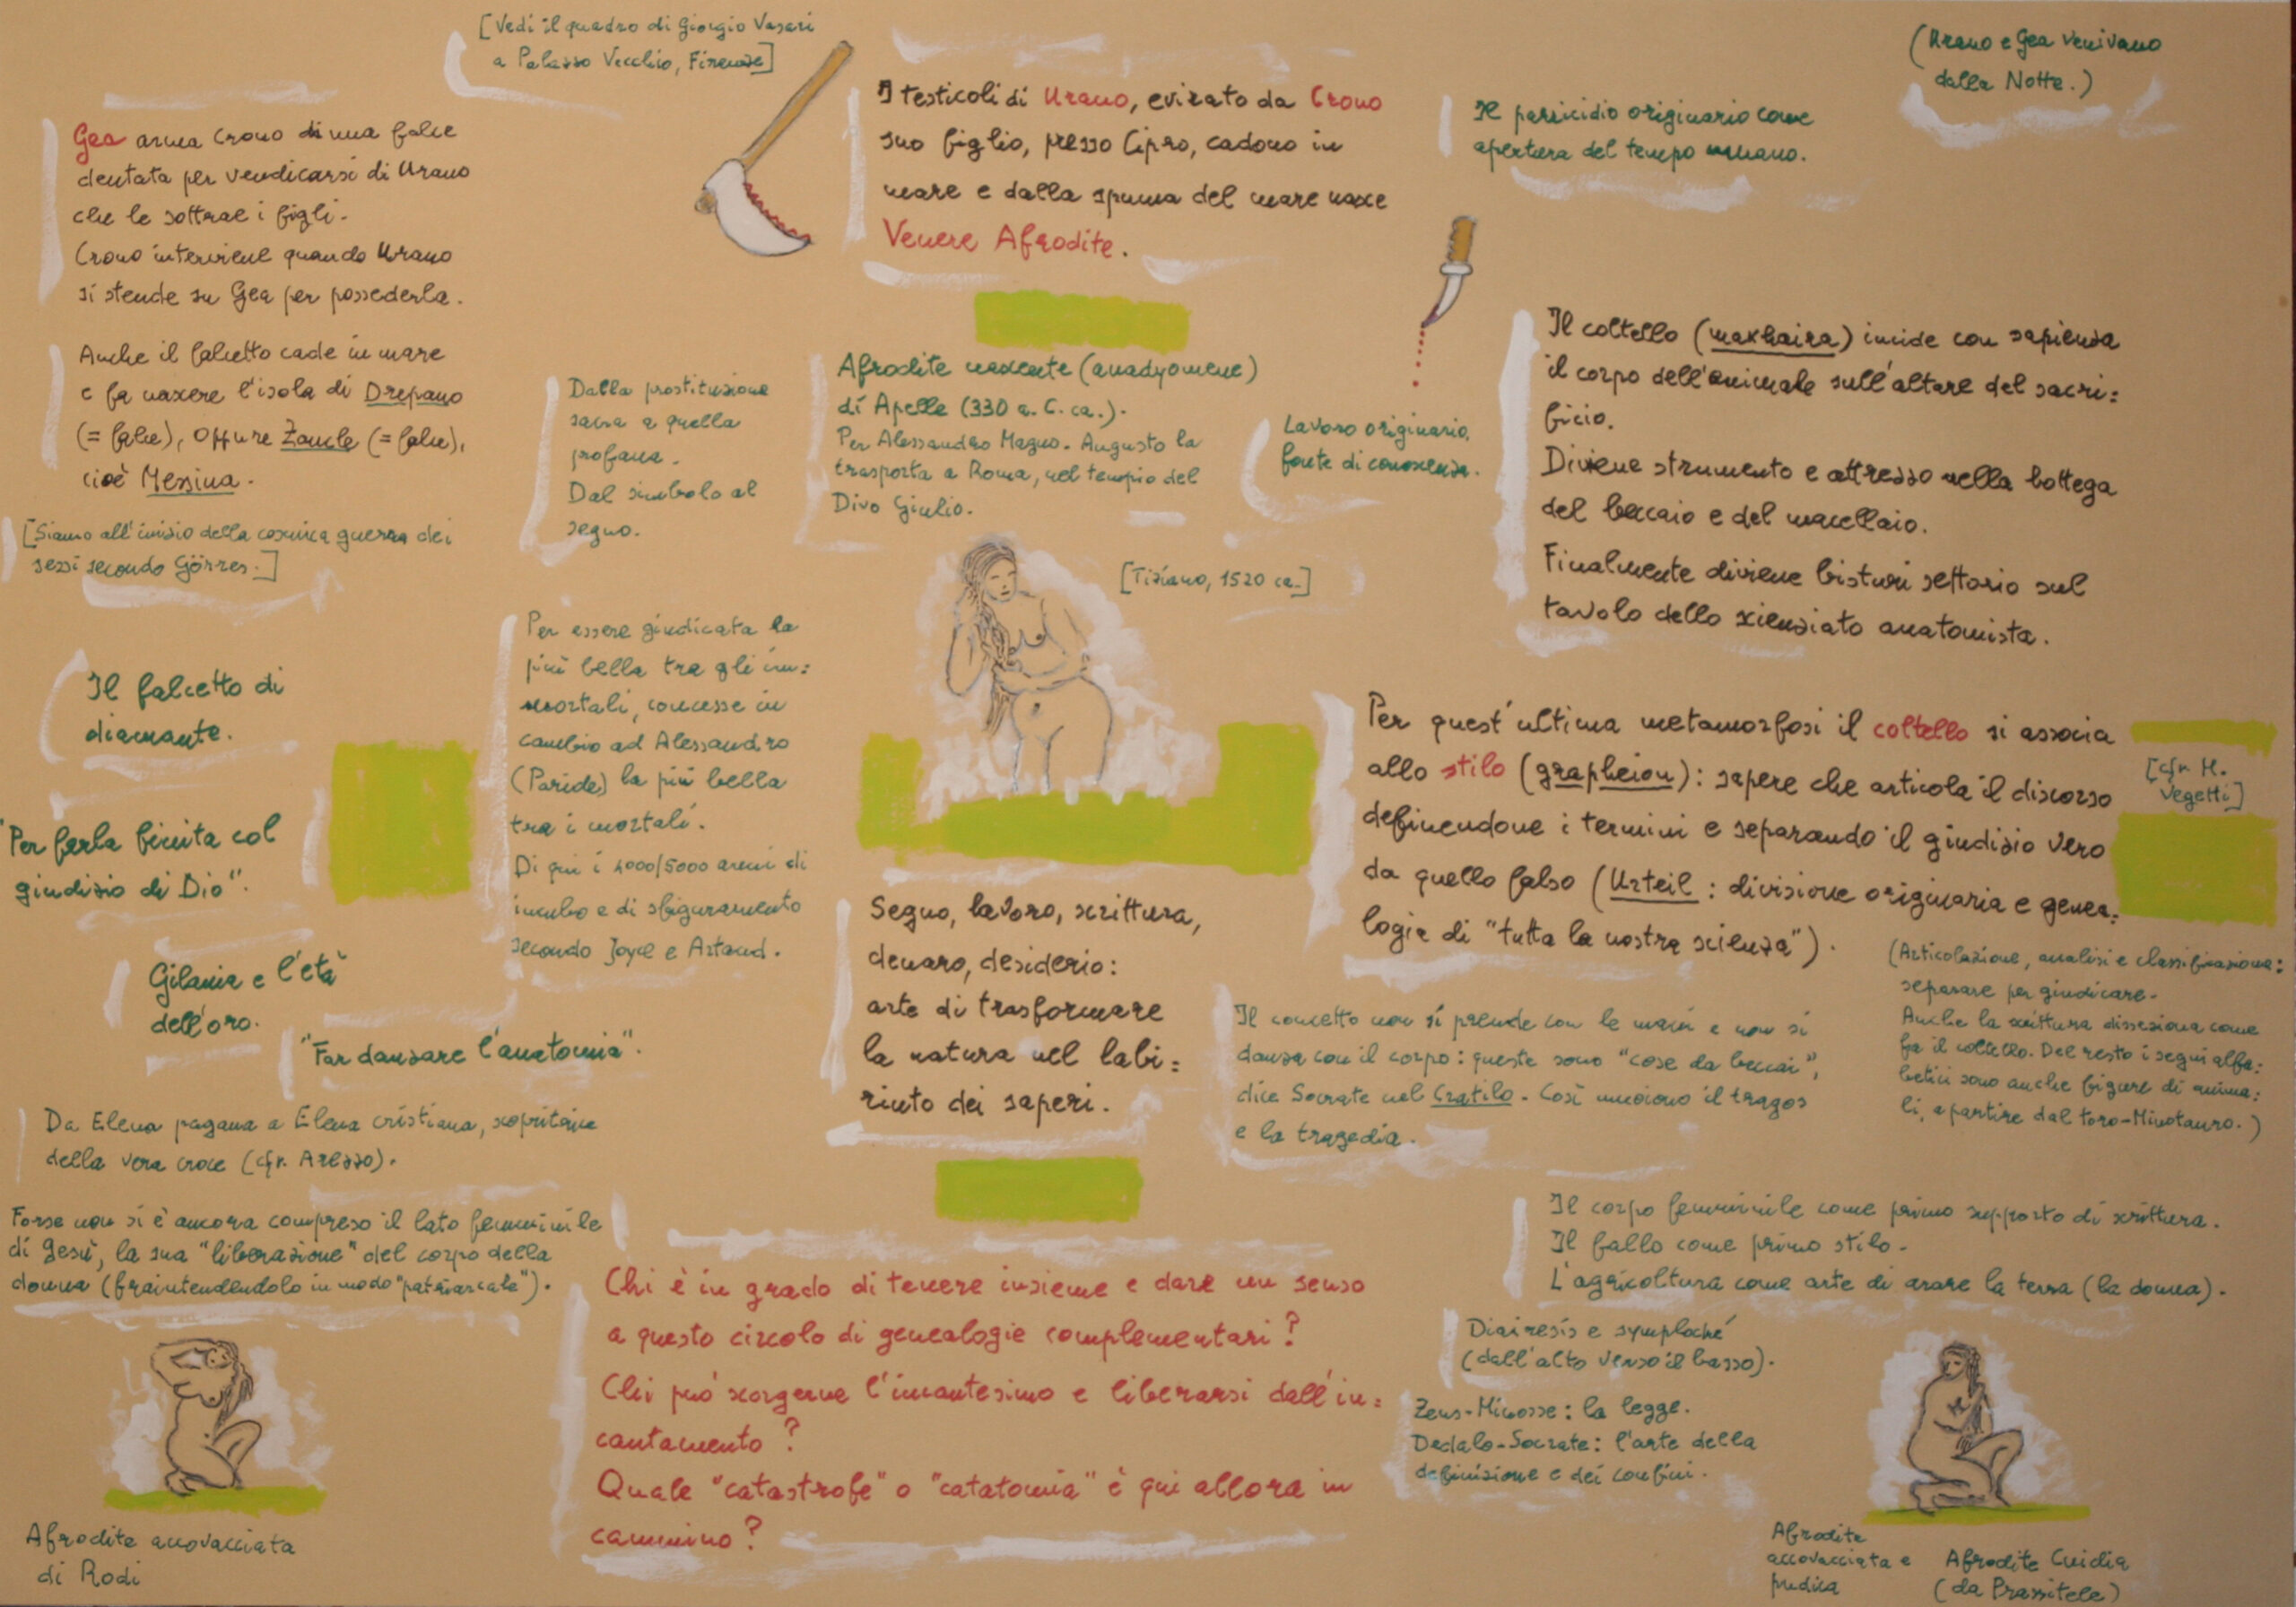 [Vedi il quadro di Giorgio Vasari
a Palazzo Vecchio, Firenze]
Gea arma Crono di una falce
dentata per vendicarsi di Urano
che le sottrae i figli.
Crono interviene quando Urano
si stende su Gea per possederla.
Anche il falcetto cade in mare
e fa nascere l'isola di Drepano
(= falce), oppure Zancle (= falce),
cioè Messina.
[Siamo all'inizio della cosmica guerra dei
sessi secondo Görres.]
I testicoli di Urano, evirato da Crono
suo figlio, presso Cipro, cadono in
mare e dalla spuma del mare nasce
Venere Afrodite.
(Urano e Gea venivano
dalla Notte.)
Il parricidio originario come
apertura del tempo umano.
Dalla prostituzione
sacra a quella
profana.
Dal simbolo al
segno.
Afrodite nascente (anadyomene)
di Apelle (330 a. C. ca.).
Per Alessandro Magno. Augusto la
trasporta a Roma, nel tempio del
Divo Giulio.
[Tiziano, 1520 ca.]
Lavoro originario,
fonte di conoscenza.
Il coltello (makhaira) incide con sapienza
il corpo dell'animale sull'altare del sacri=
ficio.
Diviene strumento e attrezzo nella bottega
del beccaio e del macellaio.
Finalmente diviene bisturi settorio sul
tavolo dello scienziato anatomista.
Il falcetto di
diamante.
"Per farla finita col
giudizio di Dio".
Gilania e l'età
dell'oro.
"Far danzare l'anatomia".
Per essere giudicata la
più bella tra gli im=
mortali, concesse in
cambio ad Alessandro
(Paride) la più bella
tra i mortali.
Di qui i 4000/5000 anni di
incubo e di sfiguramento
secondo Joyce e Artaud.
Per quest'ultima metamorfosi il coltello si associa
allo stilo (grapheion): sapere che articola il discorso
definendone i termini e separando il giudizio vero
da quello falso (Urteil: divisione originaria e genea=
logia di "tutta la nostra scienza").
[cfr. M.
Vegetti]
(Articolazione, analisi e classificazione:
separare per giudicare.
Anche la scrittura disseziona come
fa il coltello. Del resto i segni alfa=
betici sono anche figure di anima=
li, a partire dal toro-Minotauro.)
Segno, lavoro, scrittura,
denaro, desiderio:
arte di trasformare
la natura nel labi=
rinto dei saperi.
Il concetto non si prende con le mani e non si
danza con il corpo: queste sono "cose da beccai",
dice Socrate nel Cratilo. Così muoiono il tragos
e la tragedia.
Da Elena pagana a Elena cristiana, scopritrice
della vera croce (cfr. Arezzo).
Forse non si è ancora compreso il lato femminile
di Gesù, la sua "liberazione" del corpo della
donna (fraintendendolo in modo "patriarcale").
Chi è in grado di tenere insieme e dare un senso
a questo circolo di genealogie complementari?
Chi può scorgerne l'incantesimo e liberarsi dall'in=
cantamento?
Quale "catastrofe" o "catatomia" è qui allora in
cammino?
Il corpo femminile come primo supporto di scrittura.
Il fallo come primo stilo.
L'agricoltura come arte di arare la terra (la donna).
Diairesis e symploché
(dall'alto verso il basso).
Zeus-Minosse: la legge.
Dedalo-Socrate: l'arte della
definizione e dei confini.
Afrodite accovacciata
di Rodi
Afrodite
accovacciata e
pudica
Afrodite Cnidia
(da Prassitele)